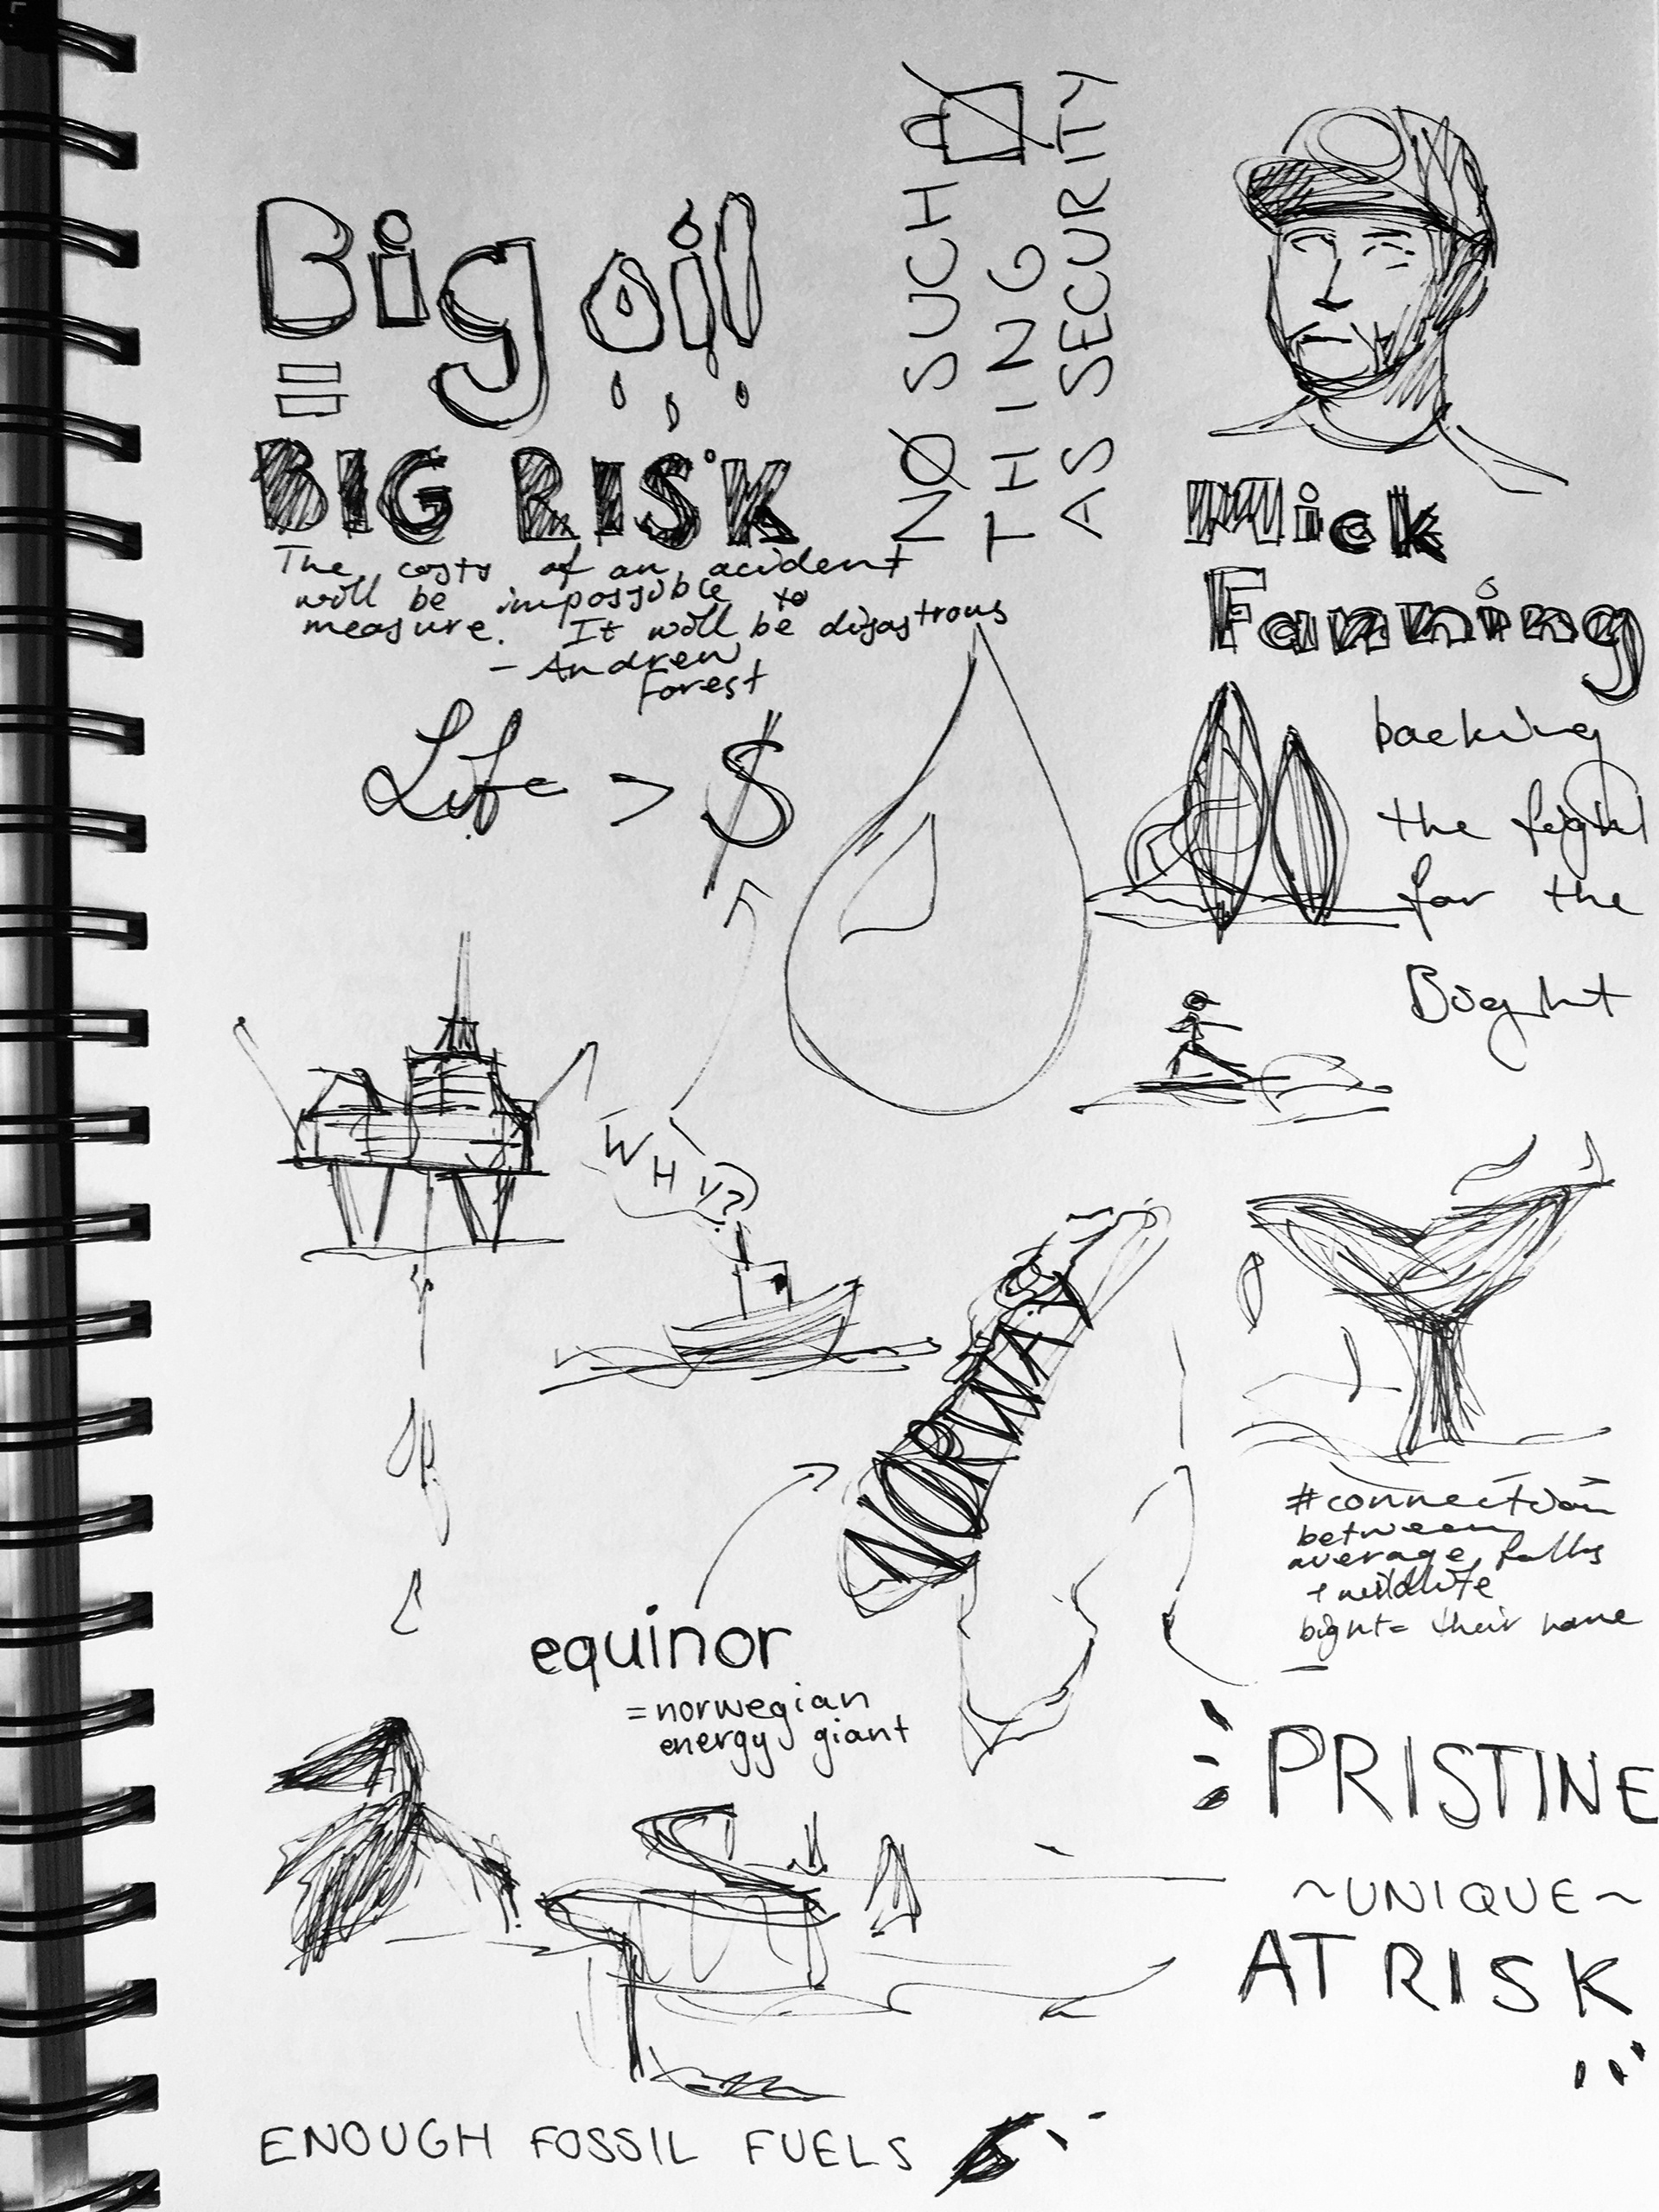 Big oil
=
BIG RISK
The costs of an acident
will be impossible to
measure. It will be disastrous
- Andrew
Forest
Life > $
NO SUCH
THING
AS SECURITY
Mick
Fanning
backing
the fight
for the
Bight
WHY?
NORWAY
equinor
=norwegian
energy giant
#connection
between
average folks
+ wildlife
bight= their home
PRISTINE
~UNIQUE~
AT RISK
ENOUGH FOSSIL FUELS